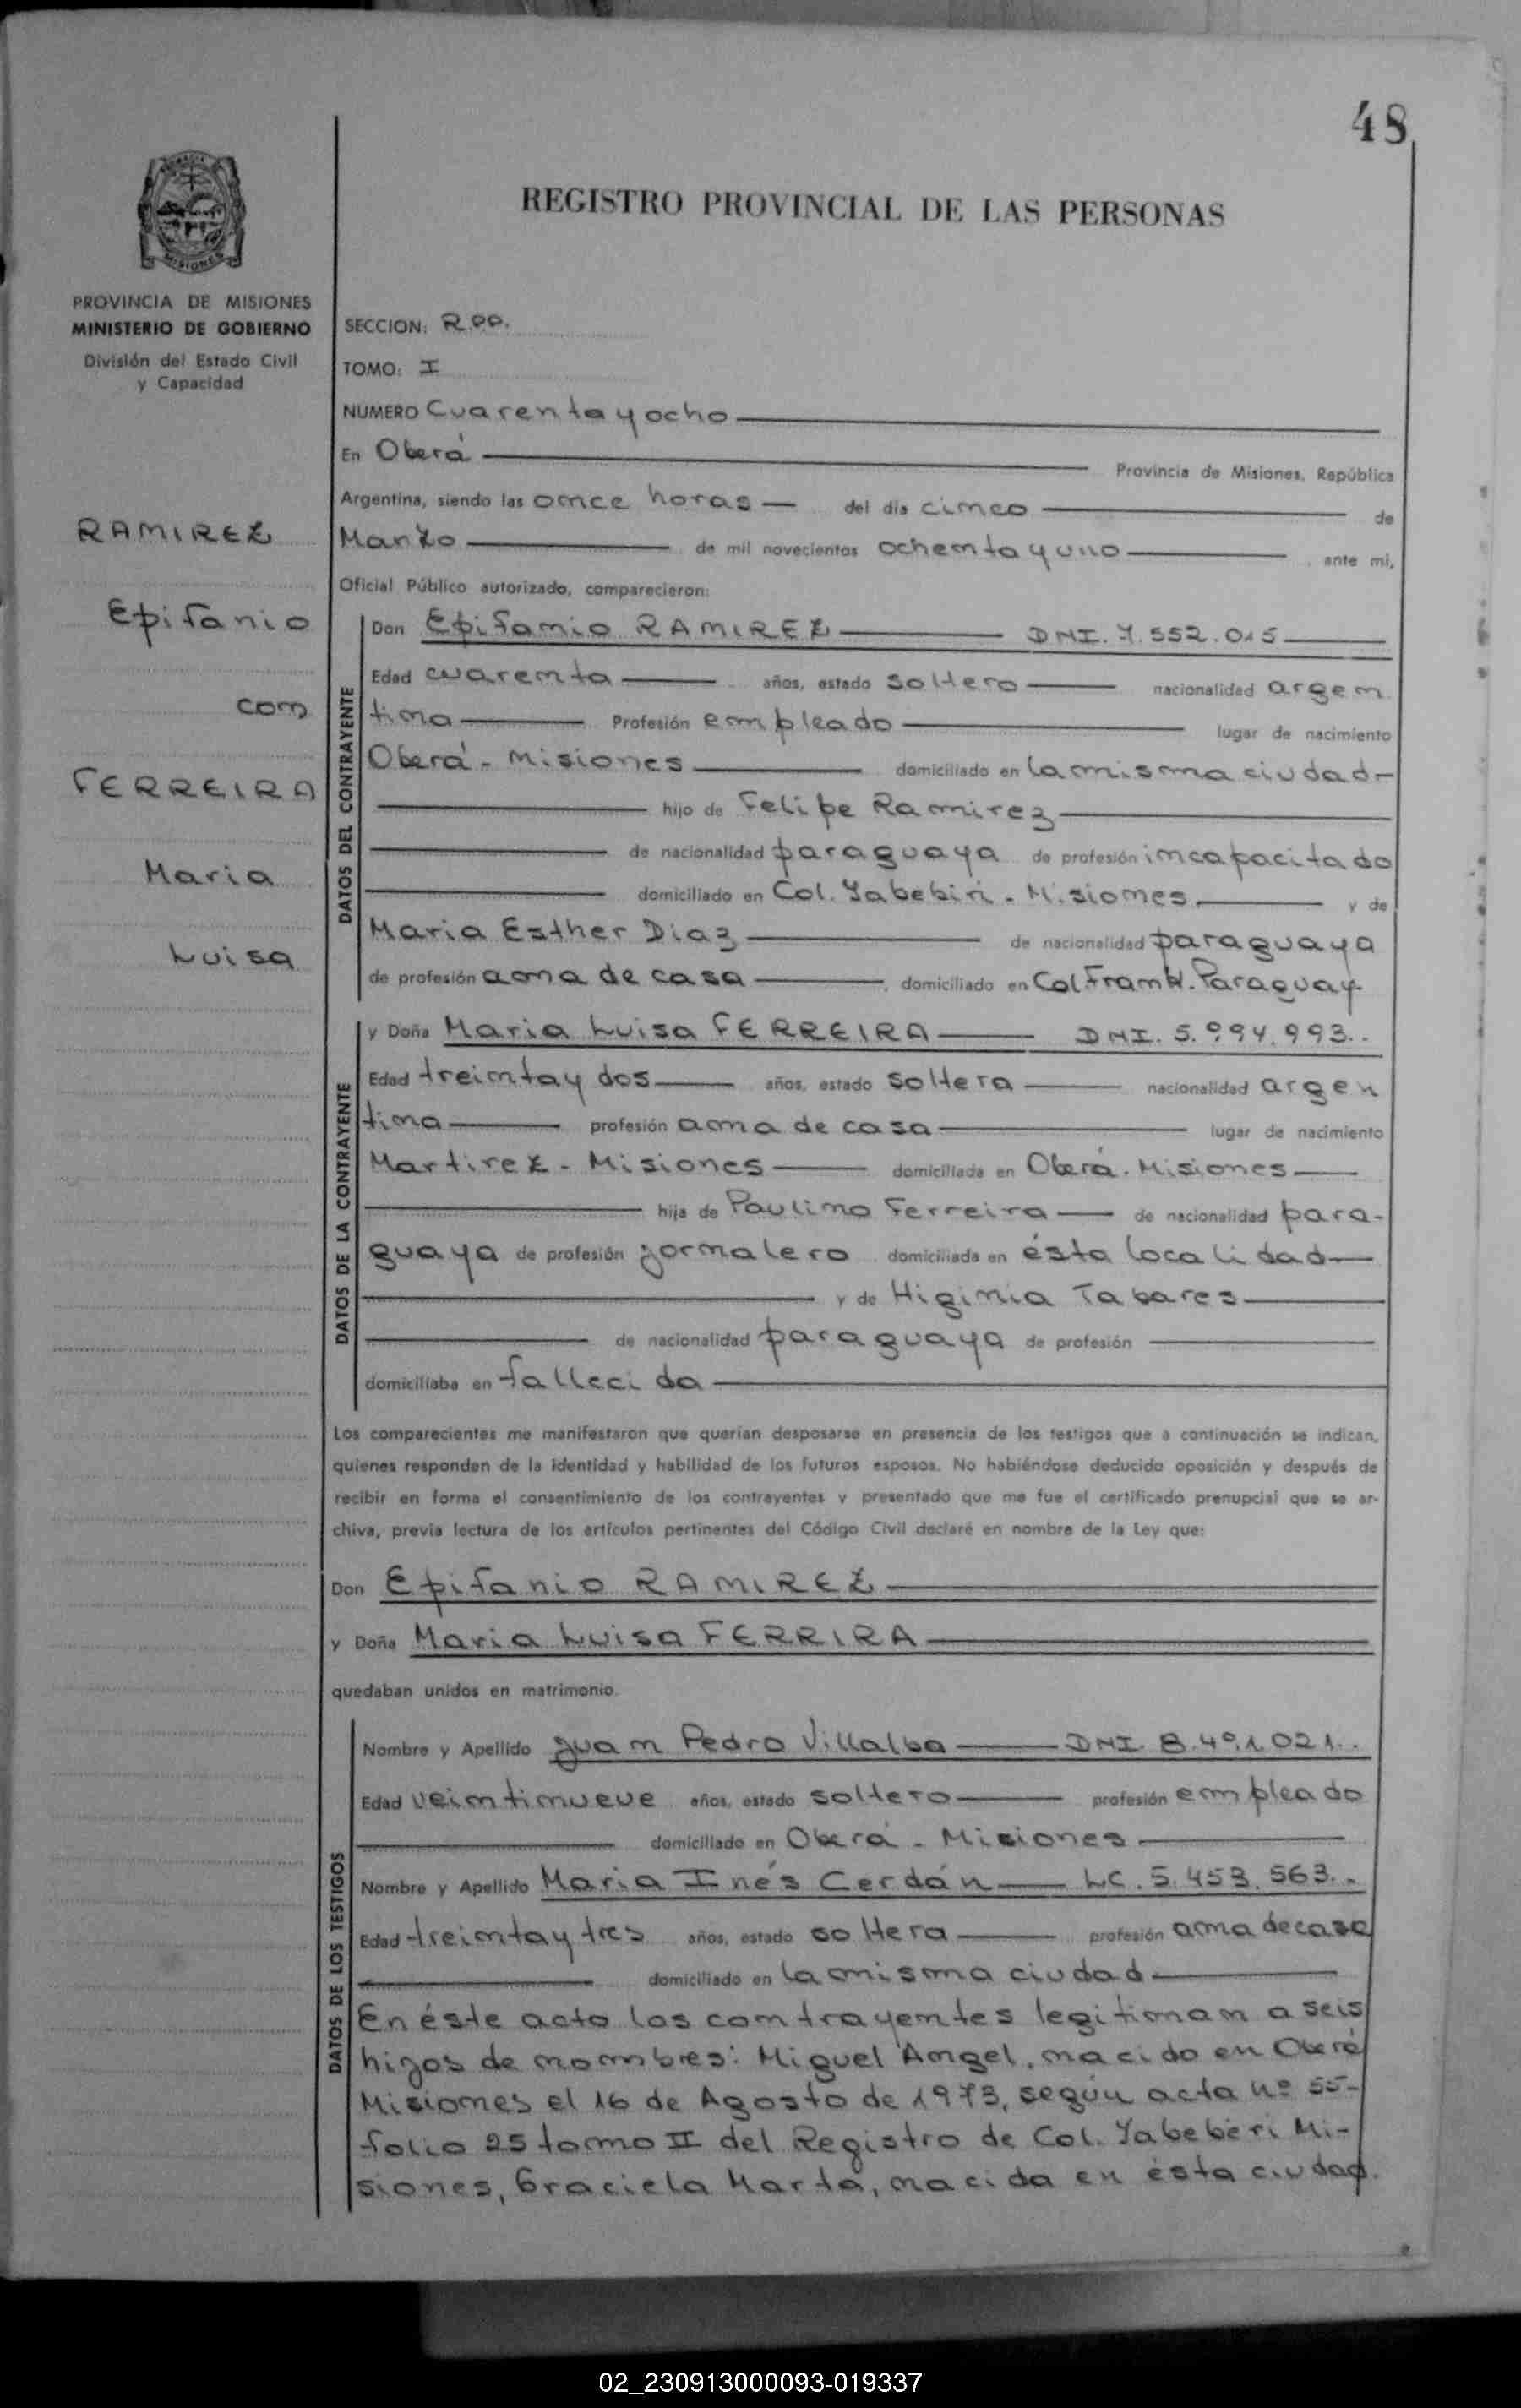 48
REGISTRO PROVINCIAL DE LAS PERSONAS
MISIONES
PROVINCIA DE MISIONES
MINISTERIO DE GOBIERNO
División del Estado Civil
y Capacidad
RAMIREZ
Epifanio
con
FERREIRA
Maria
Luisa
SECCION:
TOMO: I
NUMERO Cuarenta y ocho
En Oberá Provincia de Misiones, República
Argentina, siendo las once horas del día cinco de
Marzo de mil novecientos ochenta y uno ante mi,
Oficial Público autorizado, comparecieron:
DATOS DEL CONTRAYENTE
Don Epifanio RAMIREZ DNI. 7.552.015
Edad cuarenta años, estado soltero nacionalidad argen
tina Profesión empleado lugar de nacimiento
Oberá - Misiones domiciliado en la misma ciudad-
hijo de Felipe Ramirez
de nacionalidad paraguaya de profesión incapacitado
domiciliado en Col. Yabebiri - Misiones y de
Maria Esther Diaz de nacionalidad paraguaya
de profesión ama de casa, domiciliado en Col. Frank. Paraguay
DATOS DE LA CONTRAYENTE
y Doña Maria Luisa FERREIRA DNI. 5.994.993..
Edad treinta y dos años, estado soltera nacionalidad argen
tina profesión ama de casa lugar de nacimiento
Martirez - Misiones domiciliada en Oberá. Misiones
hija de Paulino Ferreira de nacionalidad para-
guaya de profesión jornalero domiciliada en ésta localidad
y de Higinia Tabares
de nacionalidad paraguaya de profesión
domiciliaba en fallecida
Los comparecientes me manifestaron que querían desposarse en presencia de los testigos que a continuación se indican,
quienes responden de la identidad y habilidad de los futuros esposos. No habiéndose deducido oposición y después de
recibir en forma el consentimiento de los contrayentes y presentado que me fue el certificado prenupcial que se ar-
chiva, previa lectura de los artículos pertinentes del Código Civil declaré en nombre de la Ley que:
Don Epifanio RAMIREZ
y Doña Maria Luisa FERRIRA
quedaban unidos en matrimonio.
DATOS DE LOS TESTIGOS
Nombre y Apellido Juan Pedro Villalba DNI. 8.401.021..
Edad veintinueve años, estado soltero profesión empleado
domiciliado en Oberá - Misiones
Nombre y Apellido Maria Inés Cerdán LC. 5.453.563..
Edad treinta y tres años, estado soltera profesión ama de casa
domiciliado en la misma ciudad
En éste acto los contrayentes legitiman a seis
hijos de nombres: Miguel Angel, nacido en Oberá
Misiones el 16 de Agosto de 1973, según acta nº 55-
folio 25 tomo II del Registro de Col. Yabeberi Mi-
siones, Graciela Marta, nacida en ésta ciudad.
02_230913000093-019337